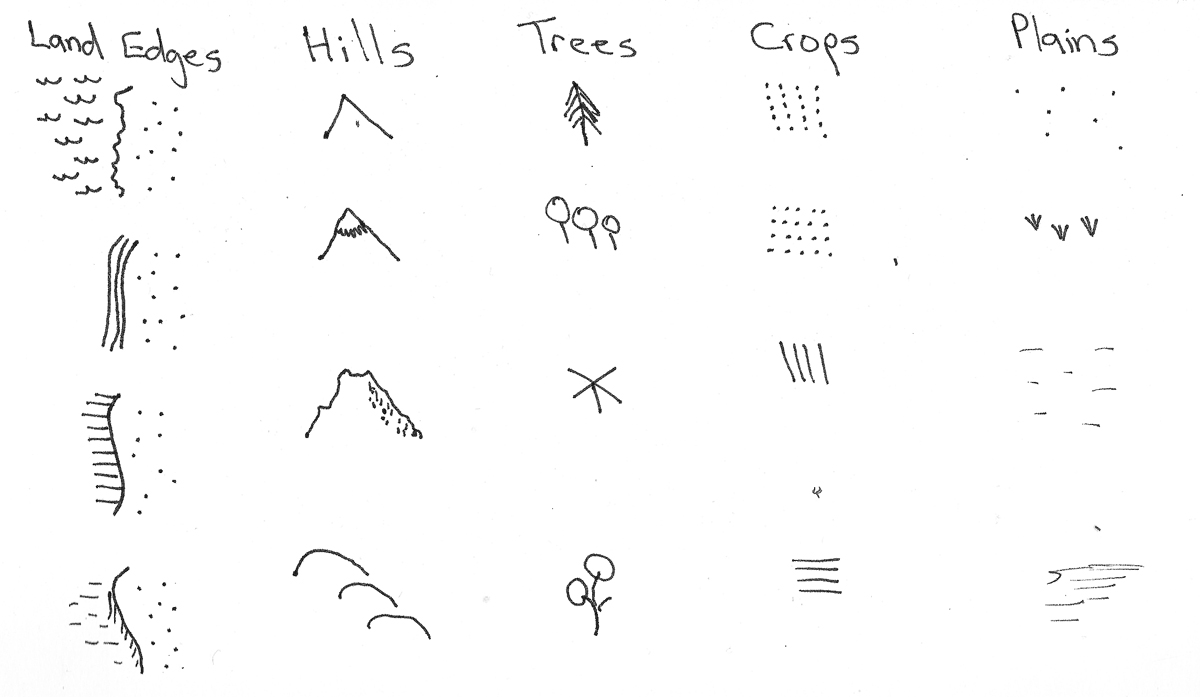 Land Edges
Hills
Trees
Crops
Plains